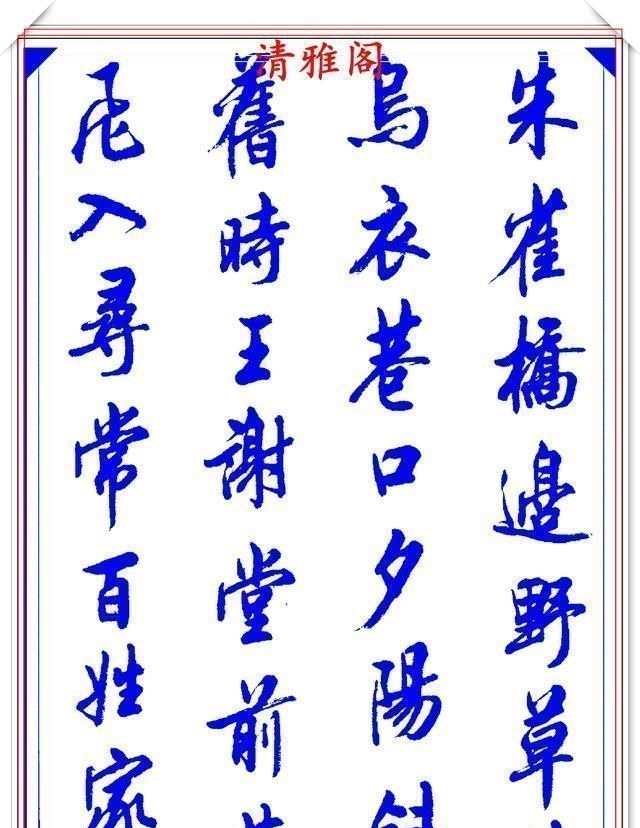 清雅阁
朱雀橋邊野草
烏衣巷口夕陽
舊時王謝堂前
飛入尋常百姓家